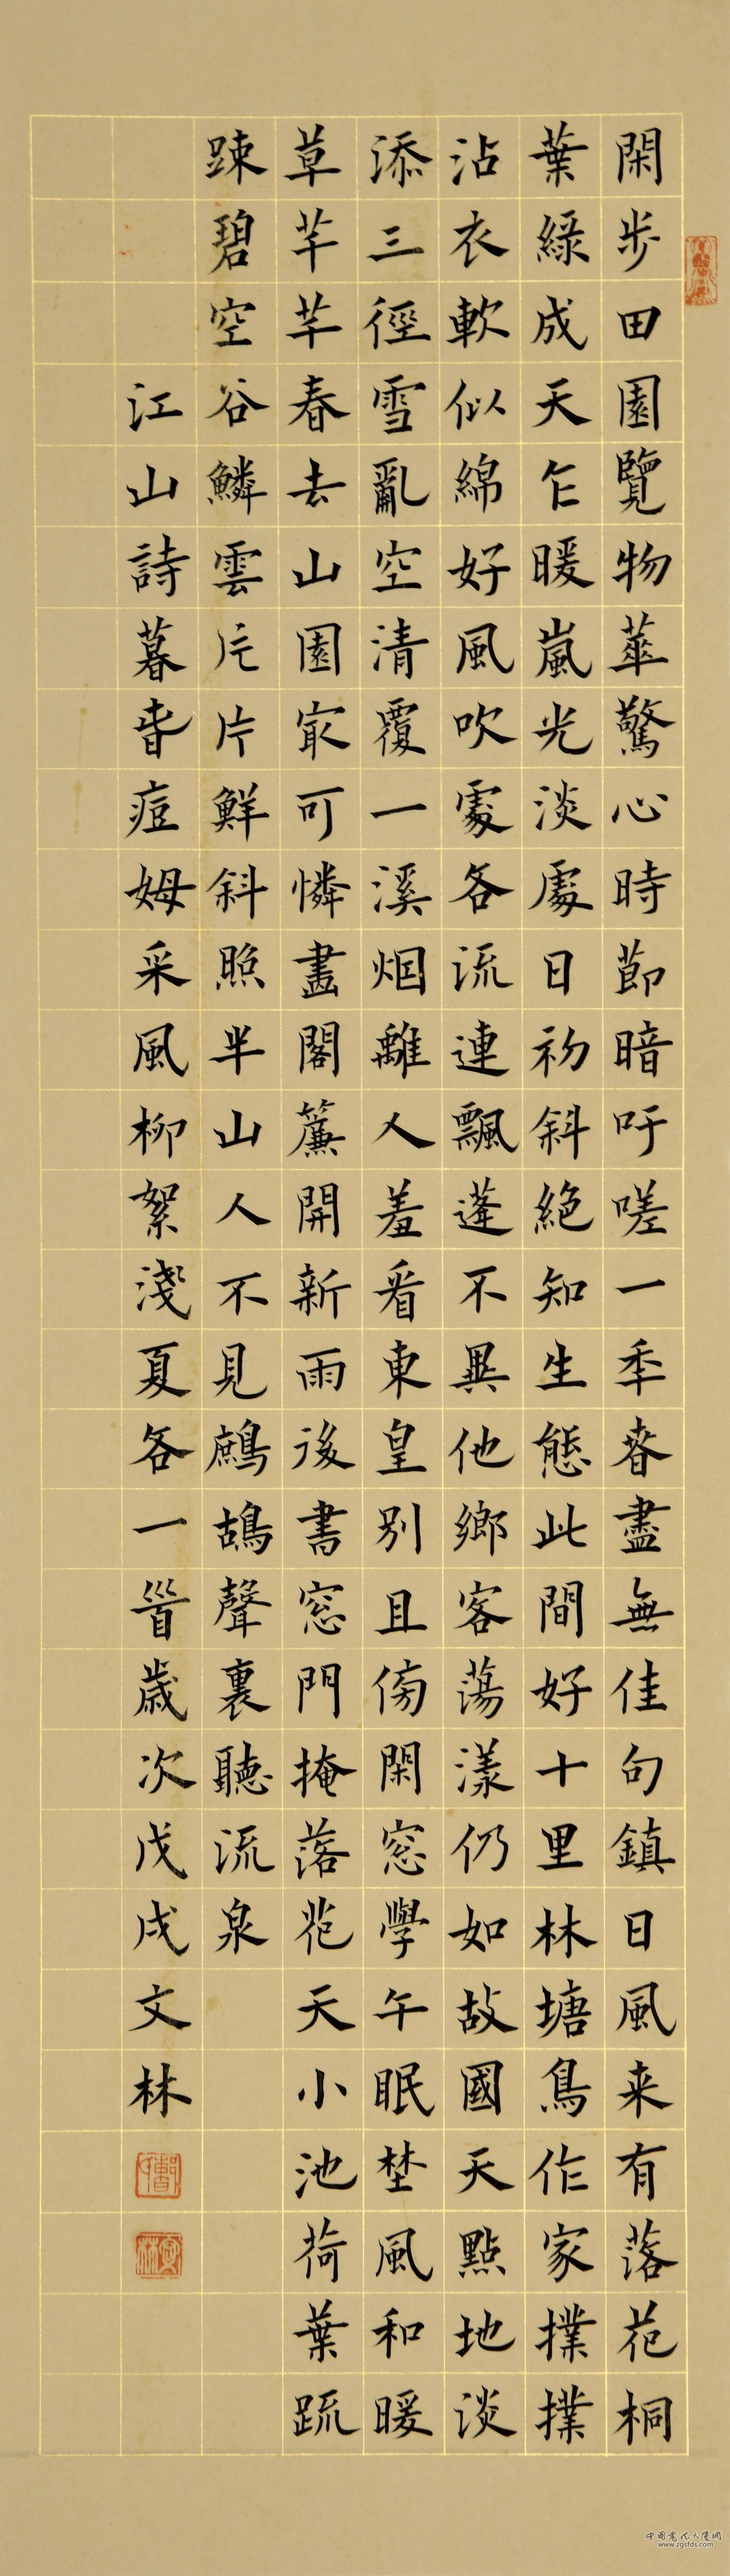 閑步田園覽物華驚心時節暗吁嗟一季春盡無佳句鎮日風来有落花桐
葉綠成天乍暖嵐光淡處日初斜絕知生態此間好十里林塘鳥作家撲撲
沾衣軟似綿好風吹處各流連飄蓬不異他鄉客蕩漾仍如故國天點地淡
添三徑雪亂空清覆一溪烟離人羞看東皇別且傍閑窓學午眠埜風和暖
草芊芊春去山園冣可憐畫閣簾開新雨後書窓門掩落花天小池荷葉疏
踈碧空谷鱗雲片片鮮斜照半山人不見鷓鴣聲裏聽流泉
江山詩暮春痘姆采風柳絮淺夏各一首歲次戊戌文林
中國書法大展網
www.zgsfds.com